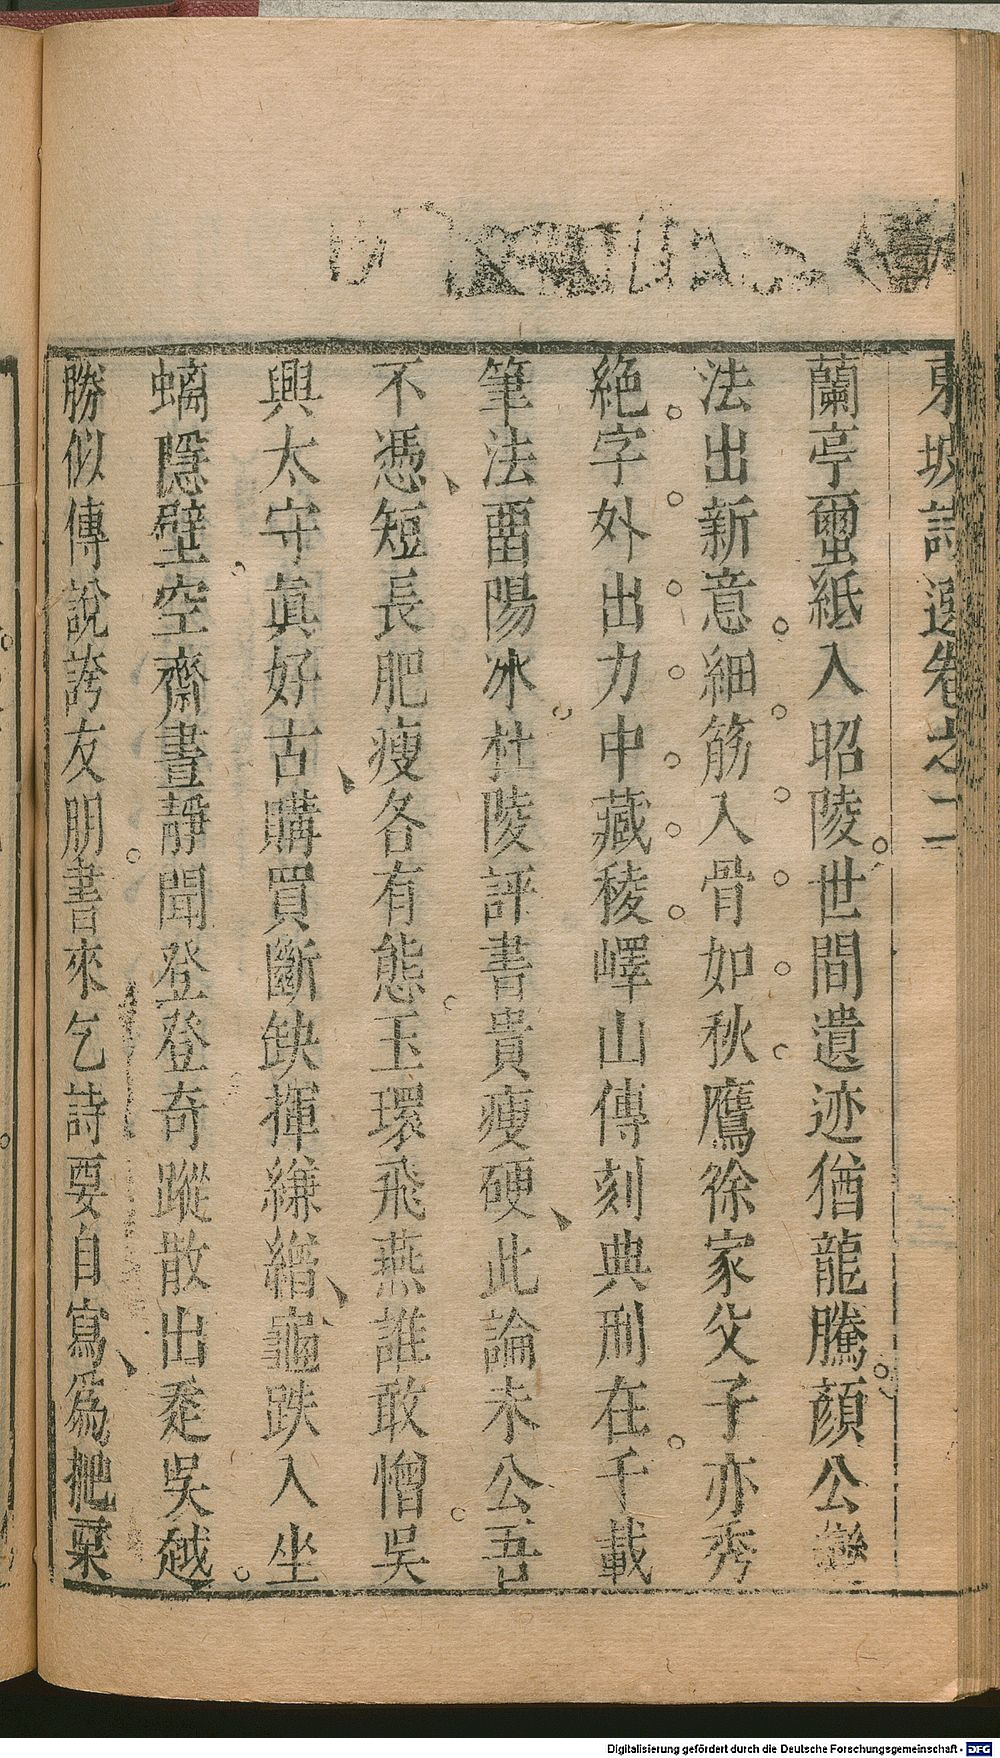 東坡詩選卷之二
蘭亭蠒紙入昭陵世間遺迹猶龍騰顏公變
法出新意細筋入骨如秋鷹徐家父子亦秀
絶字外出力中藏稜嶧山傳刻典刑在千載
筆法畱陽冰杜陵評書貴瘦硬此論未公吾
不憑短長肥瘦各有態玉環飛燕誰敢憎吳
興太守眞好古購買斷缺揮縑繒龜趺入坐
螭隱壁空齋晝靜聞登登奇蹤散出走吳越
勝似傳說誇友朋書來乞詩要自寫爲把栗
Digitalisierung gefördert durch die Deutsche Forschungsgemeinschaft - DFG